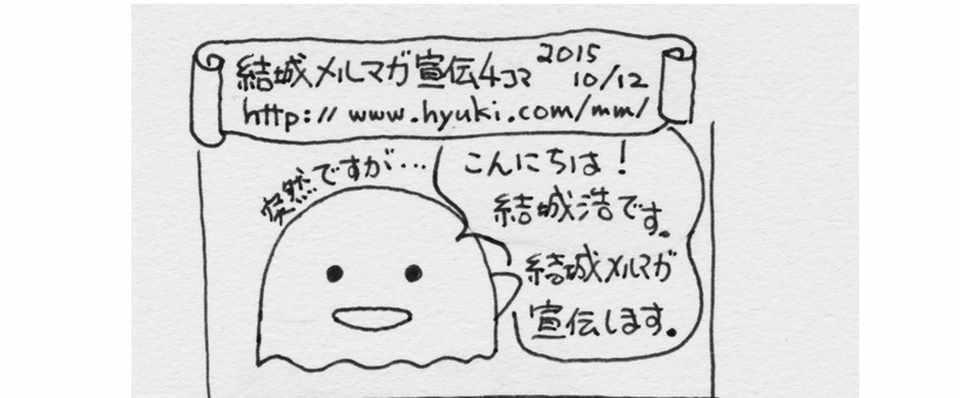 結城メルマガ宣伝4コマ 2015 10/12
http://www.hyuki.com/mm/
突然ですが…
こんにちは!
結城浩です。
結城メルマガ
宣伝します。